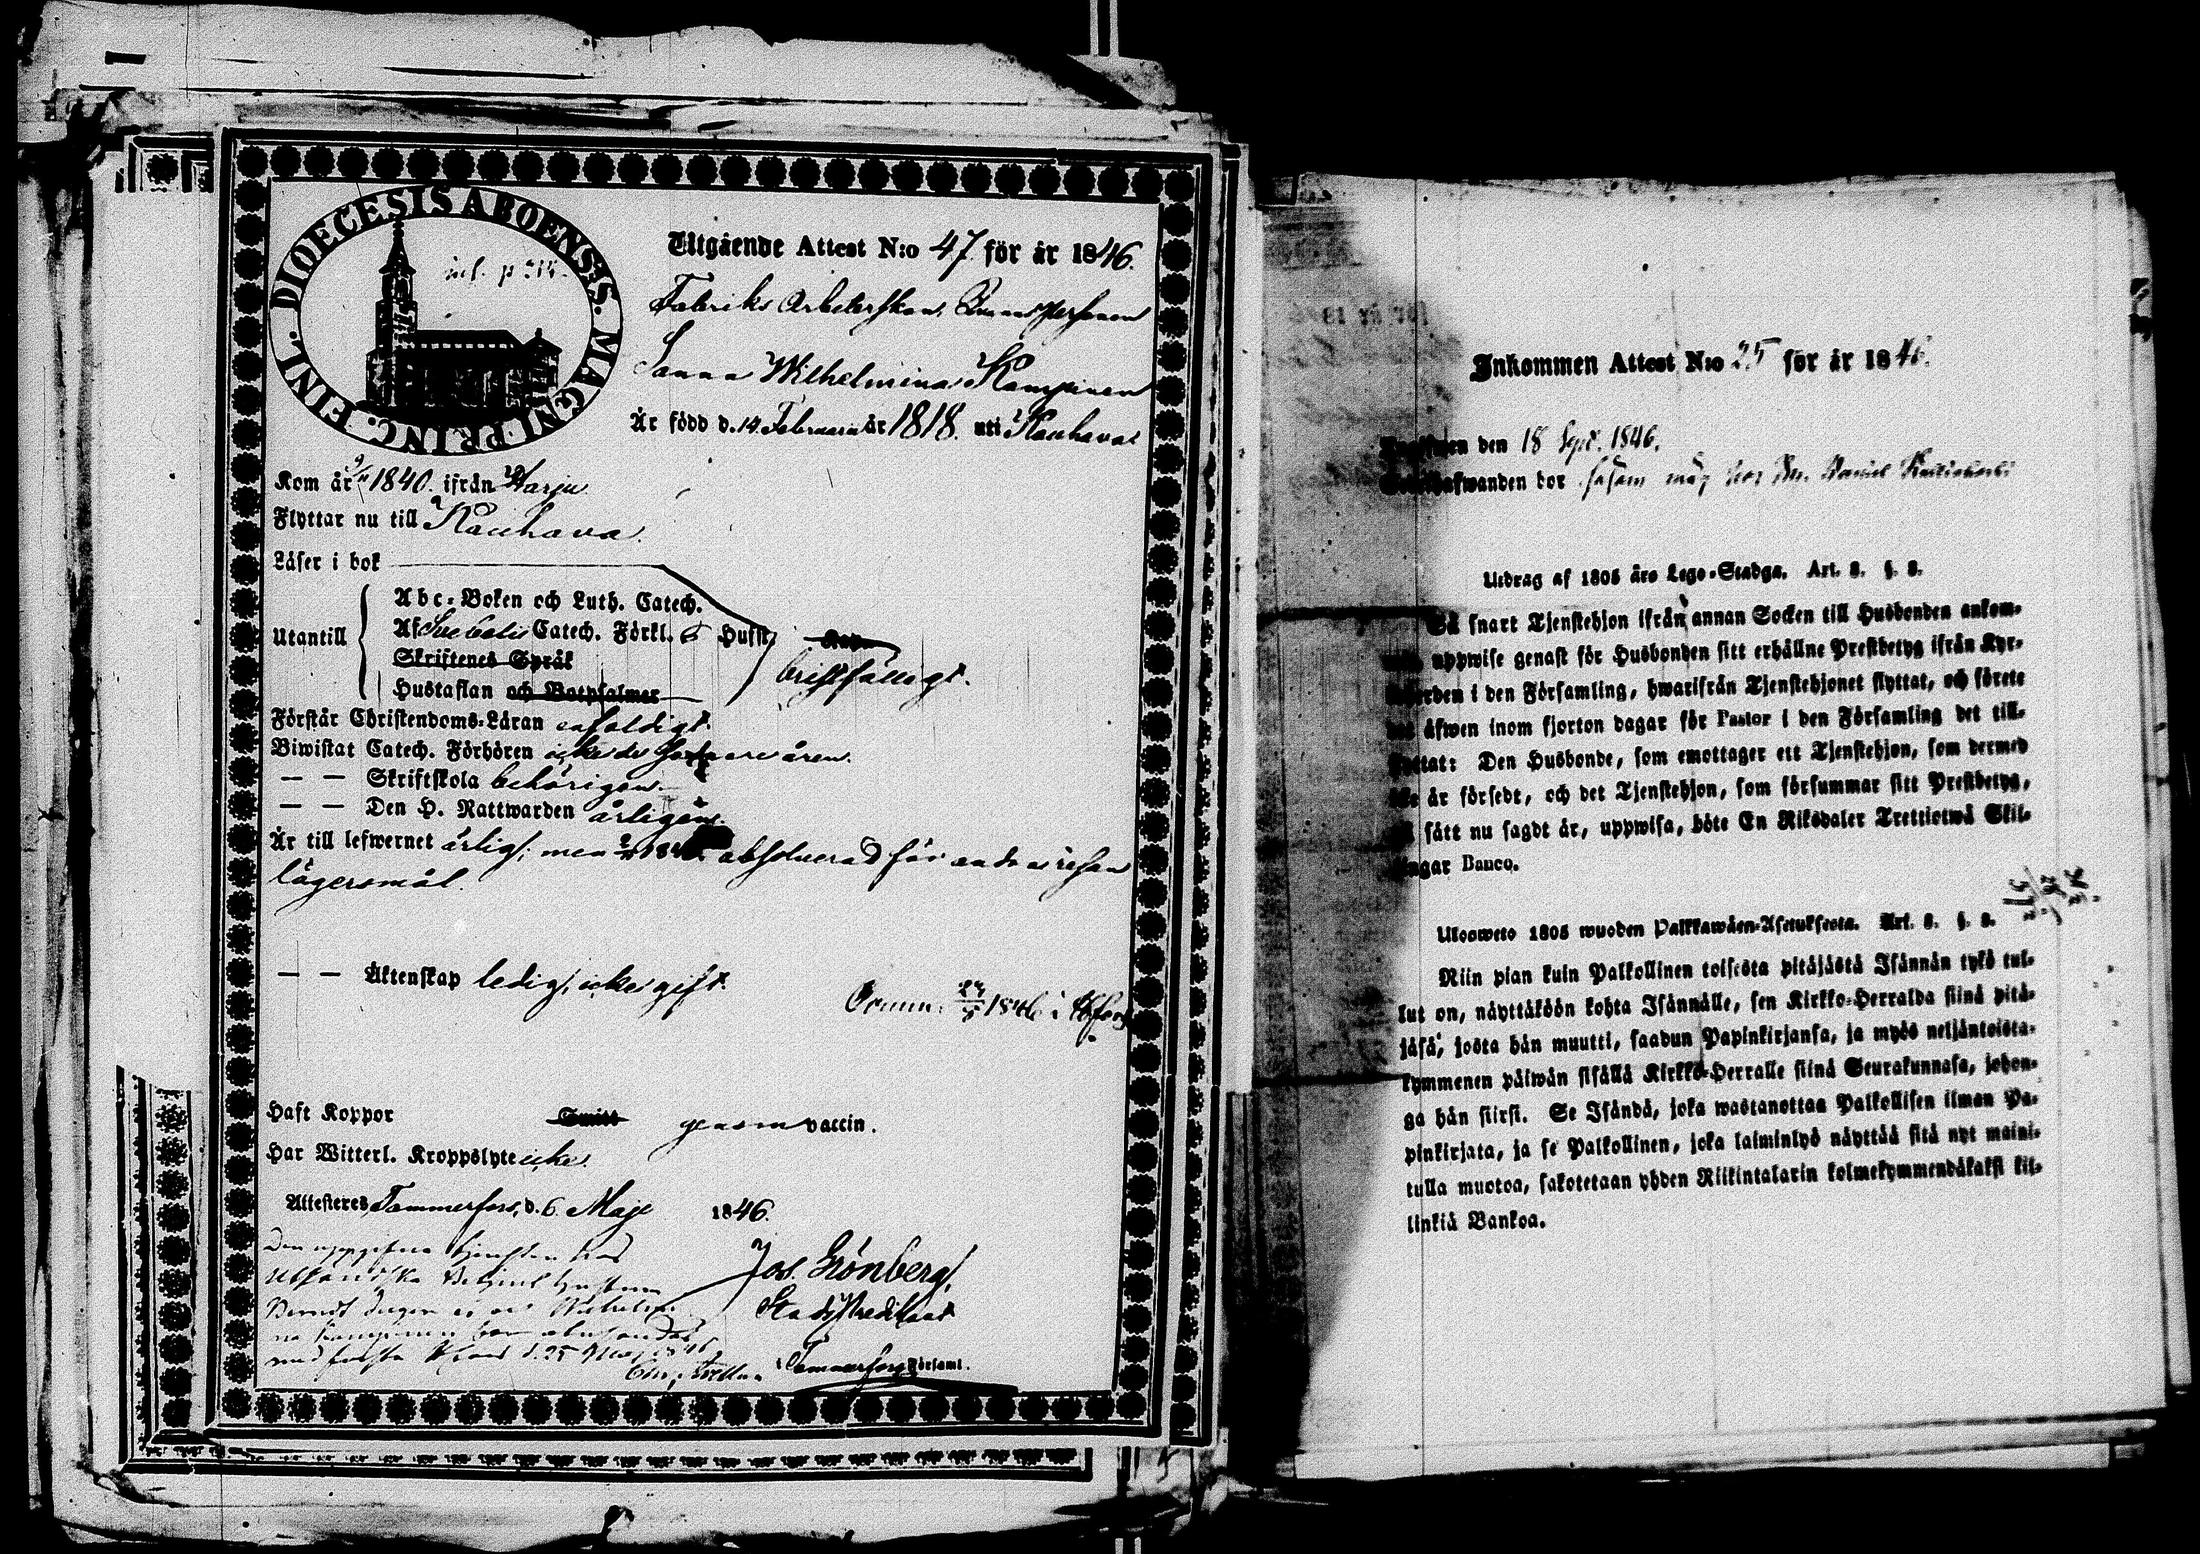 DIOECESIS ABOENSIS. MAGNI PRINC. FINL.
inf. p 314.
Utgående Attest N:o 47. för år 1846.
Fabriks Arbeterskan, Qvinspersonen
Sanna Wilhelmina Kampinen
Är född d. 14 Februarii år 1818. uti Kauhava
Kom år 1840. ifrån Harju
Flyttar nu till Kauhava.
Läser i bok
Utantill
Abc-Boken och Luth. Catech.
Af Svebelii Catech. Förkl. 6 Hufst.
Skriftenes Språk
Hustaflan och Botpsalmer
bristfälligt.
Förstår Christendoms-Läran enfaldigt.
Biwistat Catech. Förhören icke de sednare åren.
— — Skriftskola behörigen.
— — Den H. Nattwarden årligen.
Är till lefwernet ärlig; men absolverad för andra resan
lägersmål.
— — Äktenskap ledig, icke gift.
1846 i
Haft Koppor genom vaccin.
Har Witterl. Kroppslyte icke.
Attesteras, Tammerfors, d. 6. Maji 1846.
Den uppgifna tjensten hos
Jos. Grönberg,
Stads Predikant
med första d. 25 Maj 1846
Tammerfors Församl.
Inkommen Attest N:o 25 för år 1846.
den 18 Sept. 1846.
hos Daniel
Utdrag af 1805 års Lego-Stadga. Art. 8. §. 8.
Så snart Tjenstehjon ifrån annan Socken till Husbonden ankom-
uppwise genast för Husbonden sitt erhållne Prestbetyg ifrån Kyr-
i den Församling, hwarifrån Tjenstehjonet flyttat, och förete
det äfwen inom fjorton dagar för Pastor i den Församling det till-
flyttat: Den Husbonde, som emottager ett Tjenstehjon, som dermed
är försedt, och det Tjenstehjon, som försummar sitt Prestbetyg,
sätt nu sagdt är, uppwisa, böte En Riksdaler Trettiotwå Skil-
lingar Banco.
Ulosweto 1805 wuoden Palkkawäen-Asetuksesta. Art. 8. §. 8.
Niin pian kuin Palkollinen toisesta pitäjästä Isännän tykö tul-
lut on, näyttäköön kohta Isännälle, sen Kirkko-Herralda siinä pitä-
jäsä, josta hän muutti, saadun Papinkirjansa, ja myös neljäntoista-
kymmenen päiwän sisällä Kirkko-Herralle siinä Seurakunnasa, johon-
ga hän siirsi. Se Isändä, joka wastanottaa Palkollisen ilman Pa-
pinkirjata, ja se Palkollinen, joka laiminlyö näyttää sitä nyt maini-
tulla muotoa, sakotetaan yhden Riikintalarin kolmekymmendäkaksi kil-
linkiä Bankoa.